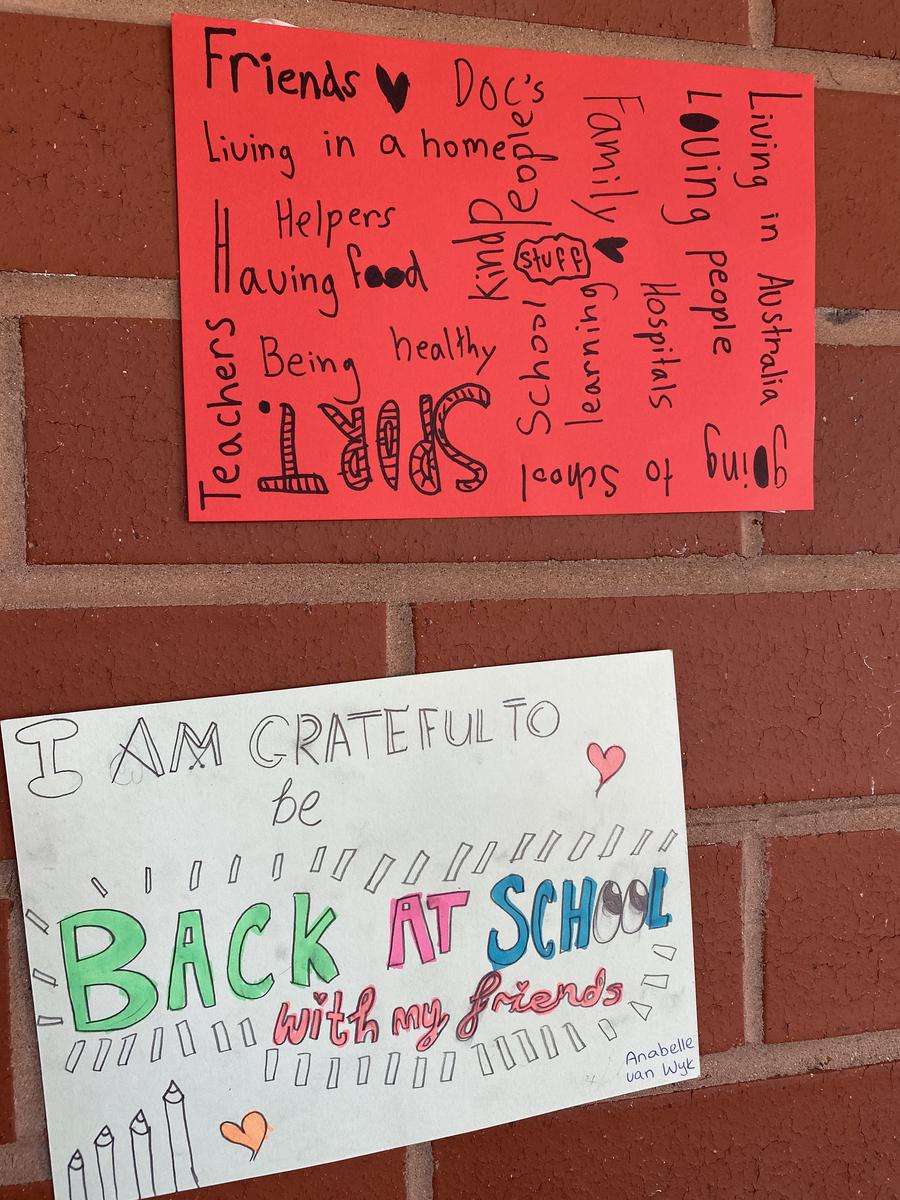 Friends
Doc's
Living in a home
Helpers
Having food
Kind people
stuff
Family
Loving people
Living in Australia
Hospitals
learning
School
Being healthy
Teachers
SPIRiT
going to School
I AM GRATEFUL TO
be
BACK AT SCHOOL
with my friends
Anabelle
van Wyk